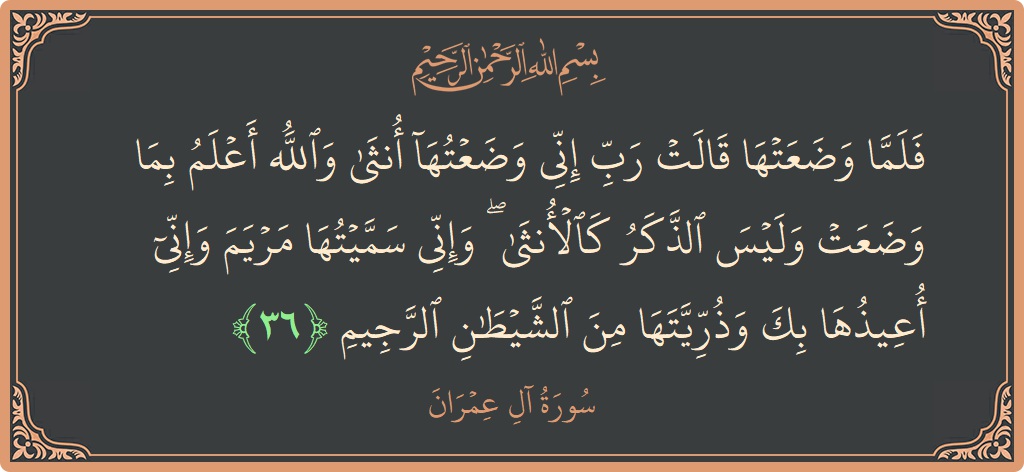 بِسْمِ اللَّهِ الرَّحْمَٰنِ الرَّحِيمِ
فَلَمَّا وَضَعَتْهَا قَالَتْ رَبِّ إِنِّى وَضَعْتُهَآ أُنثَىٰ وَٱللَّهُ أَعْلَمُ بِمَا
وَضَعَتْ وَلَيْسَ ٱلذَّكَرُ كَٱلْأُنثَىٰ ۖ وَإِنِّى سَمَّيْتُهَا مَرْيَمَ وَإِنِّىٓ
أُعِيذُهَا بِكَ وَذُرِّيَّتَهَا مِنَ ٱلشَّيْطَٰنِ ٱلرَّجِيمِ ﴿٣٦﴾
سُورَةُ آلِ عِمْرَانَ